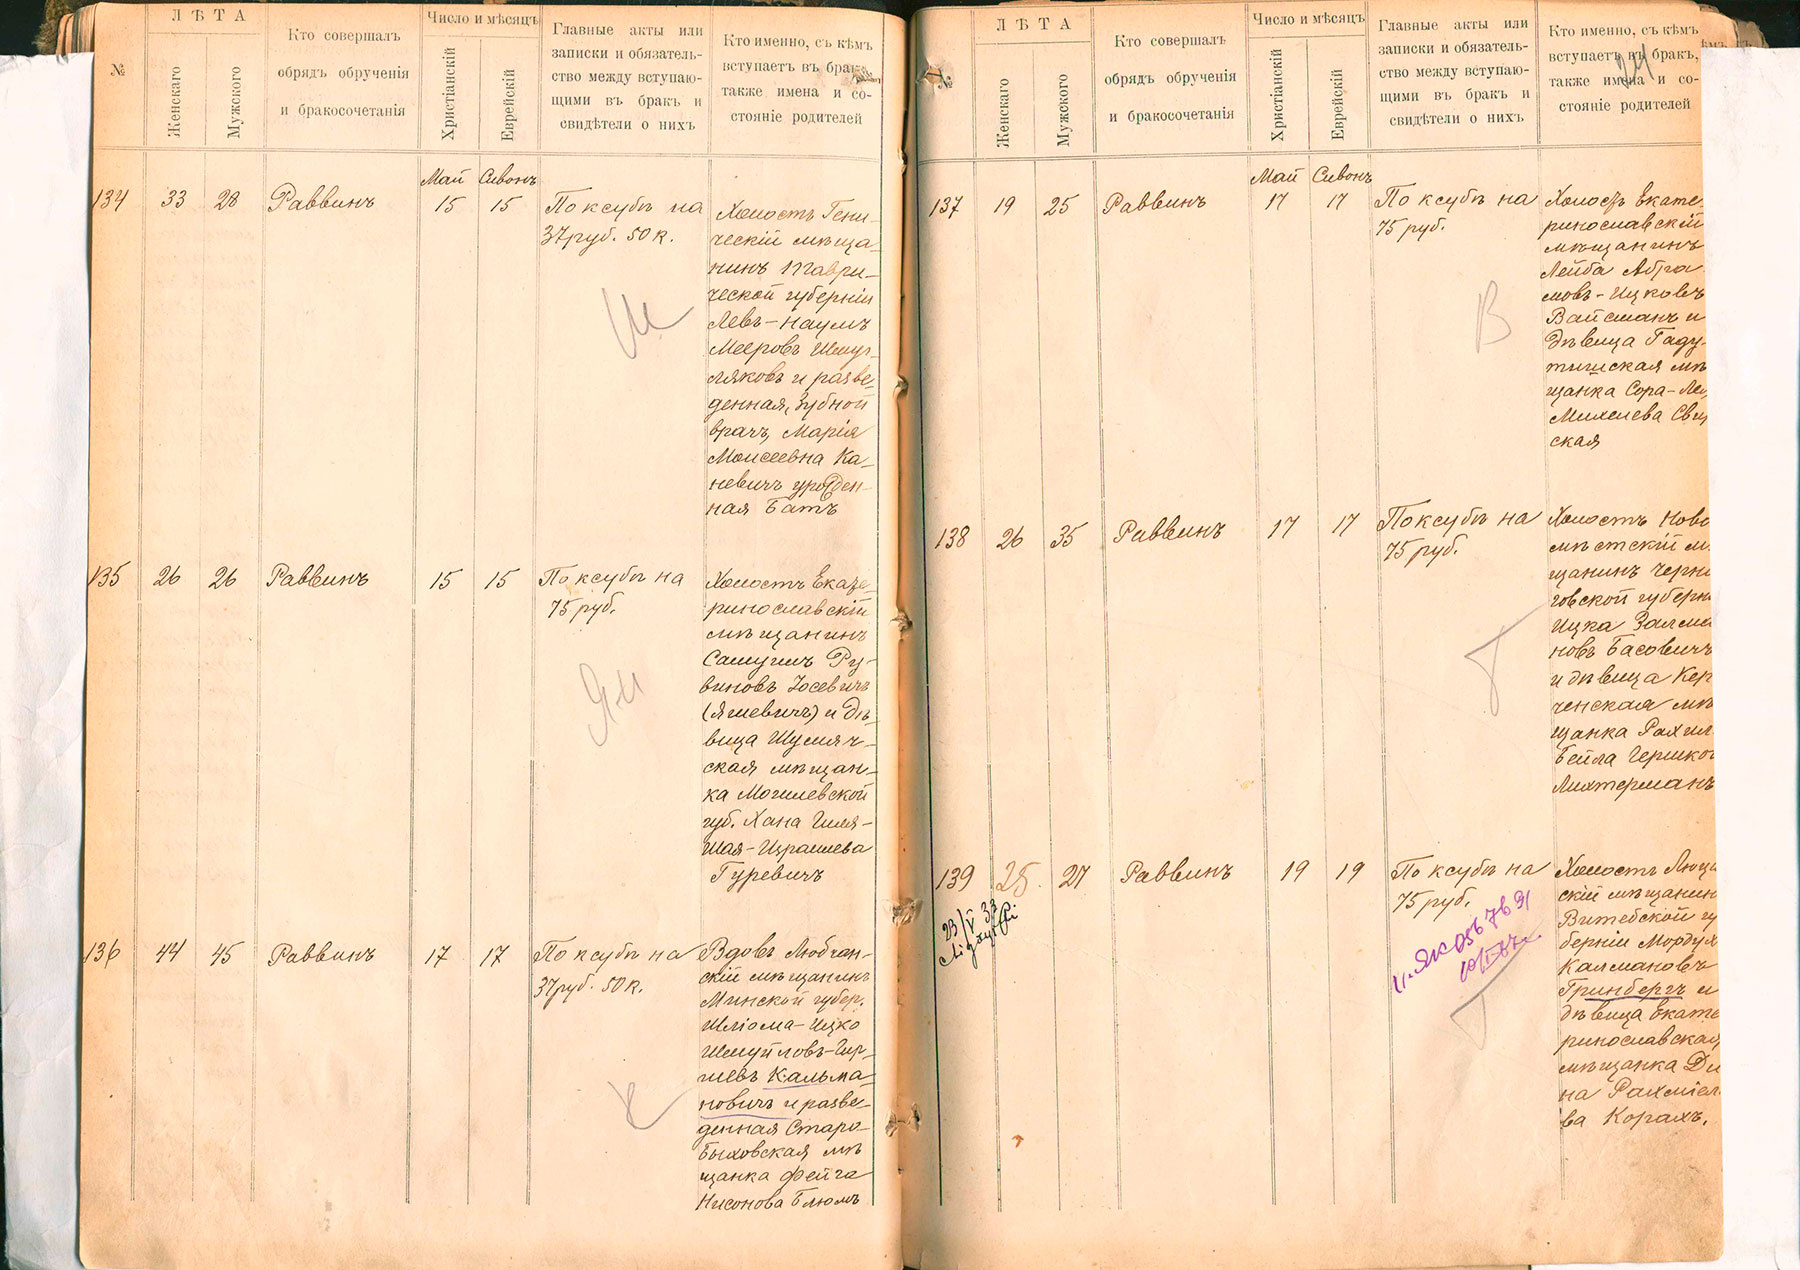 №
ЛѢТА
Женскаго
Мужского
Кто совершалъ
обрядъ обрученія
и бракосочетанія
Число и мѣсяцъ
Христіанскій
Еврейскій
Главные акты или
записки и обязатель-
ство между вступаю-
щими въ бракъ и
свидѣтели о нихъ
Кто именно, съ кѣмъ
вступаетъ въ бракъ,
также имена и со-
стояніе родителей
Май Сивонъ
134 33 28 Раввинъ 15 15
По ксубѣ на
37 руб. 50 к.
Холостъ Гени-
ческій мѣща-
нинъ Таври-
ческой губерніи
Левъ-Наумъ
Мееровъ Шмуг-
ляковъ и разве-
денная, зубной
врачъ, Марія
Моисеевна Ка-
невичъ урожден-
ная Батъ
Ш
135 26 26 Раввинъ 15 15
По ксубѣ на
75 руб.
Холостъ Екате-
ринославскій
мѣщанинъ
Самуилъ Ру-
виновъ Іосевичъ
(Яшевичъ) и дѣ-
вица Шумяч-
ская мѣщан-
ка Могилевской
губ. Хана Гиля-
Шая-Израилева
Гуревичъ
136 44 45 Раввинъ 17 17
По ксубѣ на
37 руб. 50 к.
Вдовъ Любчан-
скій мѣщанинъ
Минской губер.
Шліома-Ицко
Шмуйловъ-Гир-
шевъ Кальма-
новичъ и разве-
денная Старо-
Быховская мѣ
щанка Фейга
Нисонова Блюмъ
К
№
ЛѢТА
Женскаго
Мужского
Кто совершалъ
обрядъ обрученія
и бракосочетанія
Число и мѣсяцъ
Христіанскій
Еврейскій
Главные акты или
записки и обязатель-
ство между вступаю-
щими въ бракъ и
свидѣтели о нихъ
Кто именно, съ кѣмъ
вступаетъ въ бракъ,
также имена и со-
стояніе родителей
Май Сивонъ
137 19 25 Раввинъ 17 17
По ксубѣ на
75 руб.
Холостъ Екате-
ринославскій
мѣщанинъ
Лейба Абра-
мовъ-Ицковъ
Вайсманъ и
дѣвица Гаду-
тишская мѣ
щанка Сора-
Михелева
ская
В
138 26 35 Раввинъ 17 17
По ксубѣ на
75 руб.
Холостъ Ново
мѣстскій м
щанинъ Черни
говской губерн
Ицка Залма
новъ Басовичъ
и дѣвица Кер
ченская мѣ
щанка Рахил
Бейла Гершко
Лихтерманъ
Г
139 25. 27 Раввинъ 19 19
23/V 37
По ксубѣ на
75 руб.
Холостъ Люца
скій мѣщанин
Витебской гу
берніи Мордух
Калмановъ
Гринбергъ и
дѣвица Екате
ринославская
мѣщанка Ди
на Рахміел
ва Корахъ.
Г